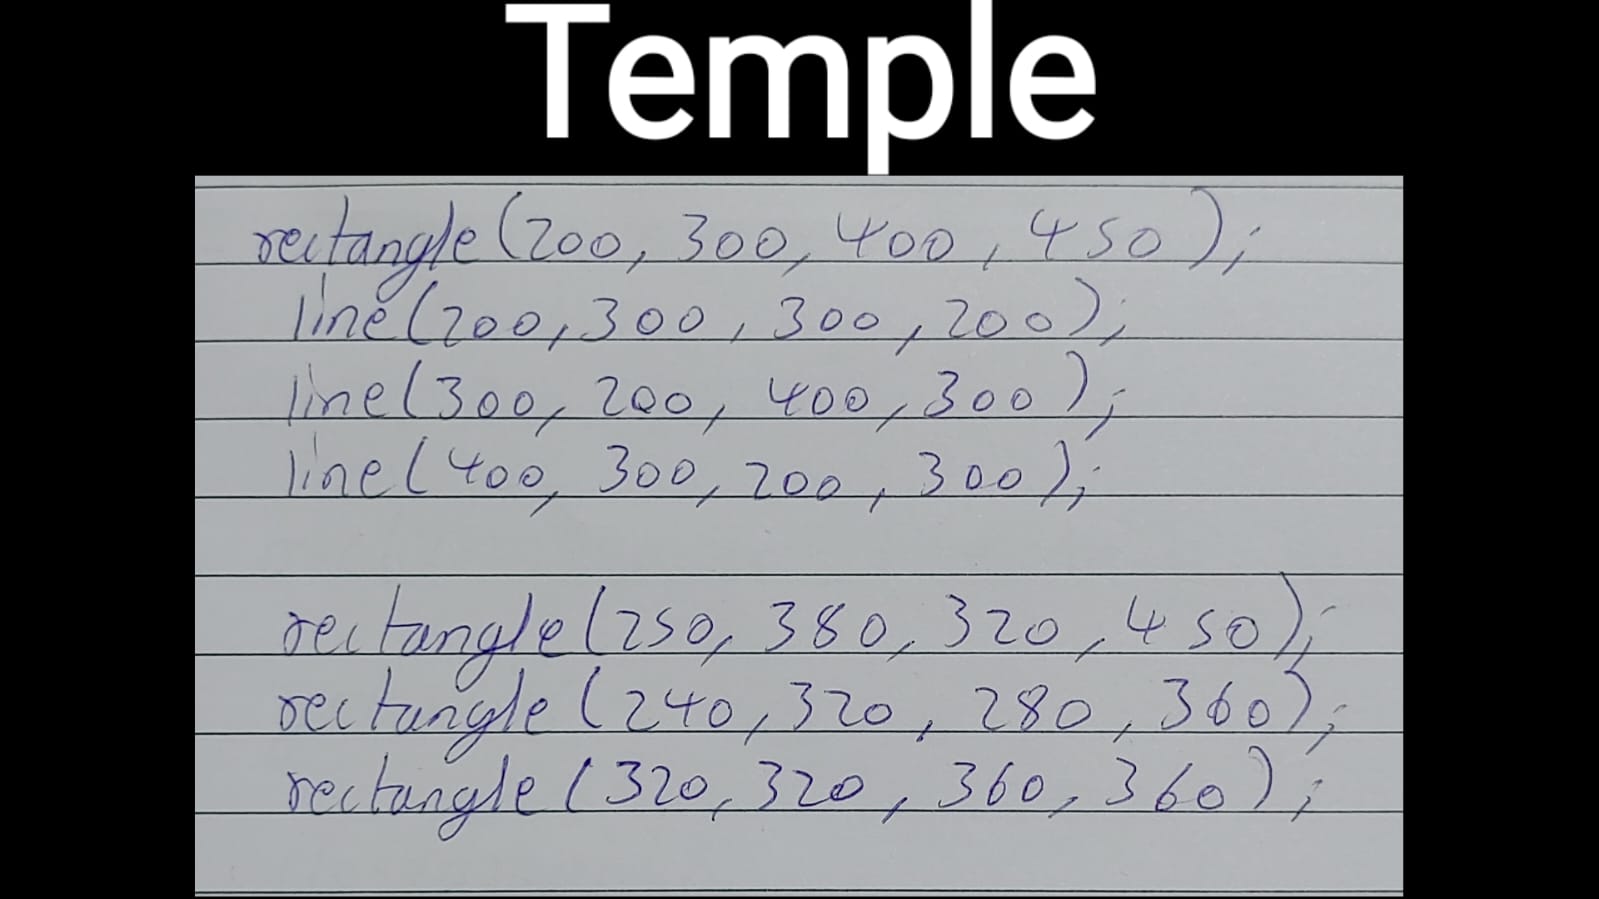 Temple
rectangle(200, 300, 400, 450);
line(200, 300, 300, 200);
line(300, 200, 400, 300);
line(400, 300, 200, 300);
rectangle(250, 380, 320, 450);
rectangle(240, 320, 280, 360);
rectangle(320, 320, 360, 360);